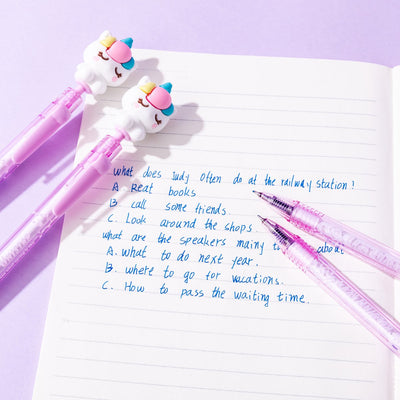 what does Judy often do at the railway station?
A Reat books
B call some friends.
C. Look around the shops
what are the speakers mainy about
A. what to do next year.
B. where to go for vacations.
C. How to pass the waiting time.